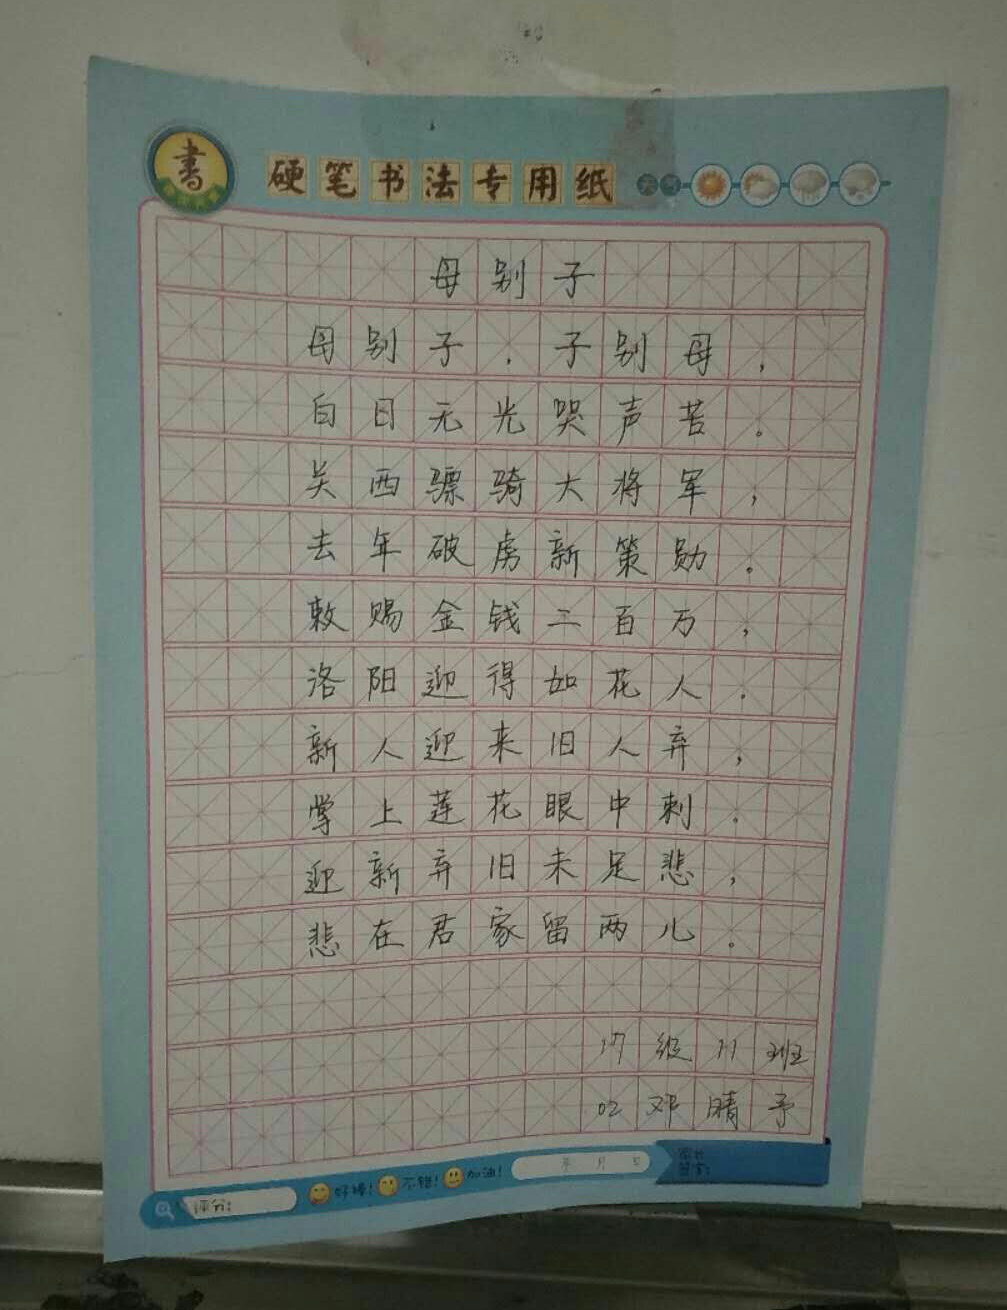 書
硬笔书法专用纸
天气
母别子
母别子,子别母,
白日无光哭声苦。
关西骠骑大将军,
去年破虏新策勋。
敕赐金钱二百万,
洛阳迎得如花人.
新人迎来旧人弃,
掌上莲花眼中刺.
迎新弃旧未足悲,
悲在君家留两儿。
17级11班
02邓晴予
评分: 好棒! 不错! 加油! 年 月 日